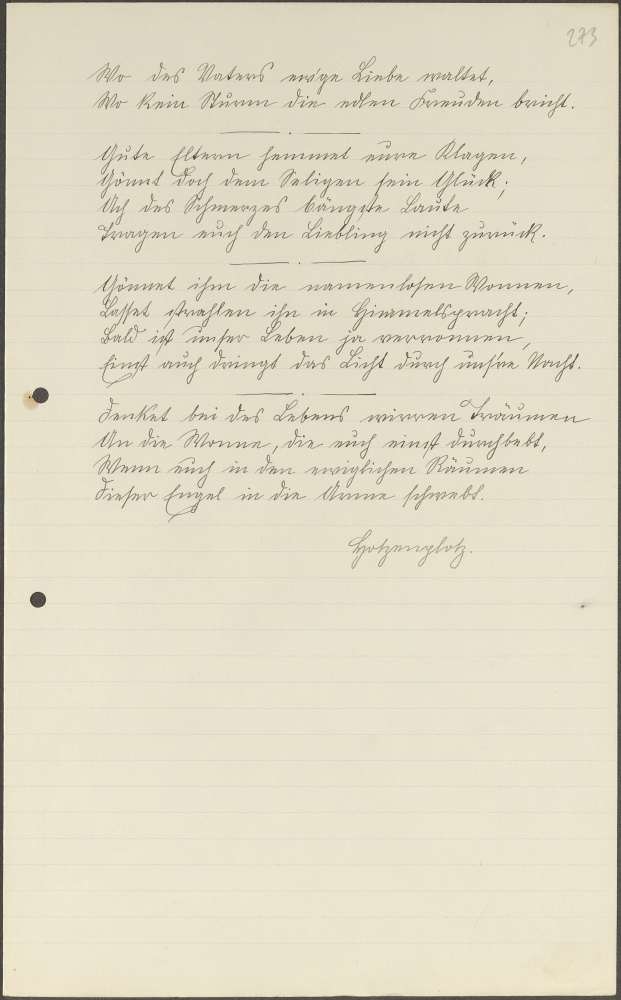 273
Wo des Vaters ew'ge Liebe waltet,
Wo kein Sturm die edlen Freuden bricht.
Gute Eltern hemmet eure Klagen,
Gönnt doch dem Seligen sein Glück;
Ach des Schmerzes bängste Laute
Tragen euch den Liebling nicht zurück.
Gönnet ihm die namenlosen Wonnen,
Lasset strahlen ihn in Himmelspracht;
Bald ist unser Leben ja verronnen,
Einst auch dringt das Licht durch uns're Nacht.
Denket bei des Lebens wirren Träumen
An die Wonne, die euch einst durchbebt,
Wenn euch in den ewiglichen Räumen
Dieser Engel in die Arme schwebt.
Hotzenplotz.